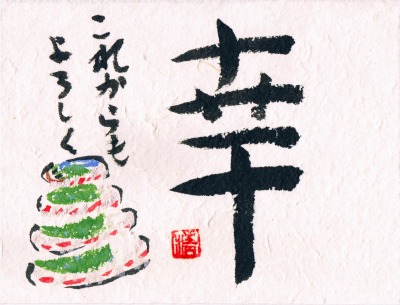 幸
これからも
よろしく